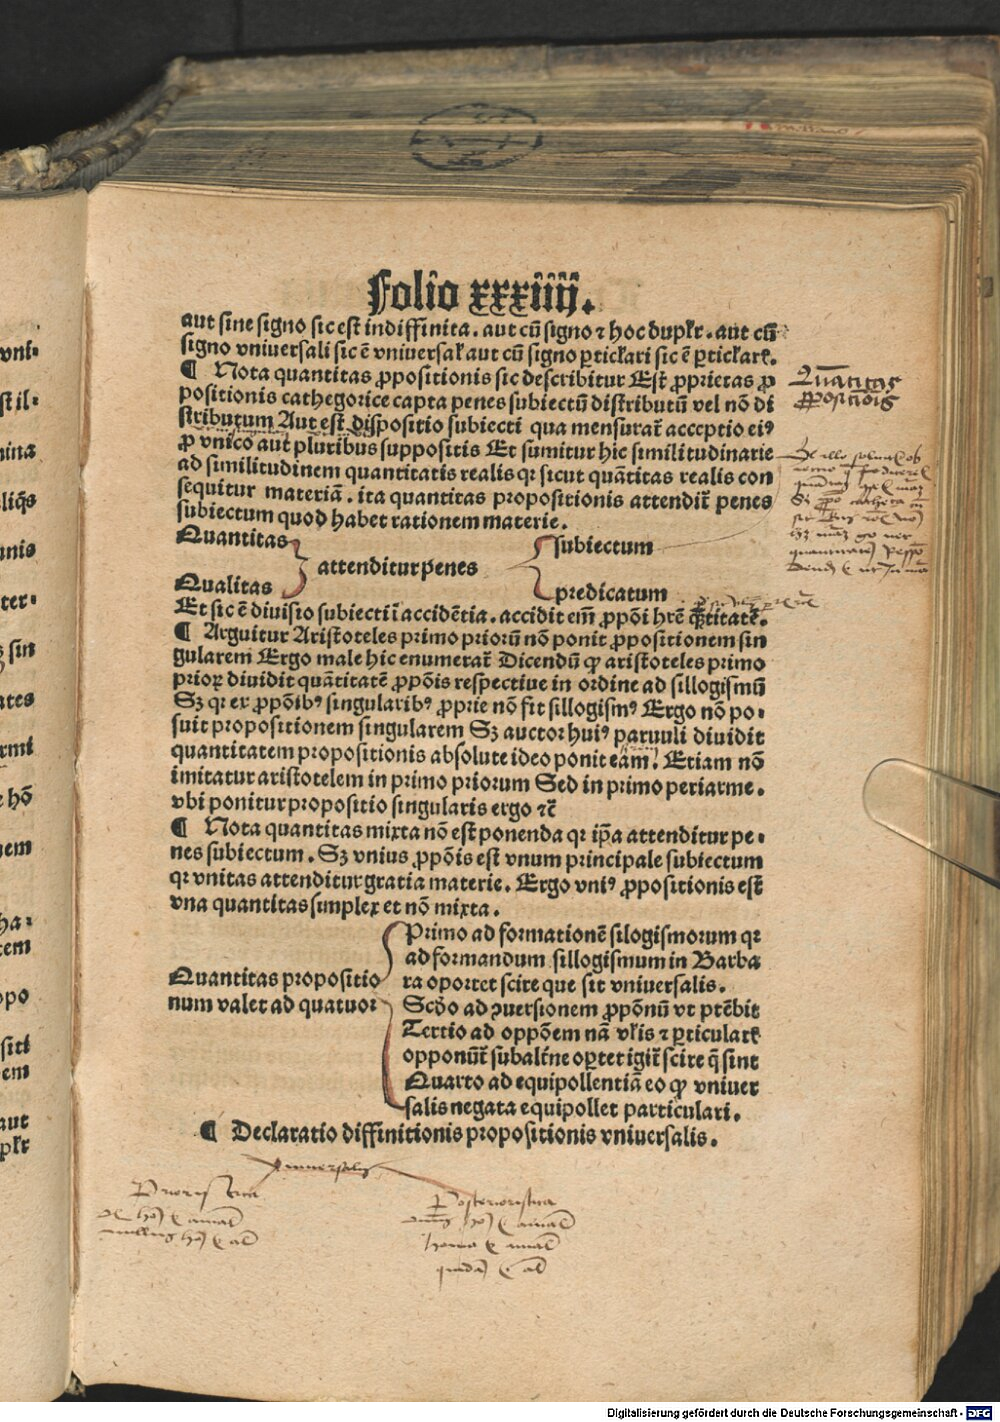 Folio xxxiiij.
aut sine signo sic est indiffinita. aut cū signo ⁊ hoc duplr̄. aut cū
signo vniuersali sic ē vniuersał aut cū signo ꝑticłari sic ē ꝑticłarē.
¶ Nota quantitas ꝓpositionis sic describitur Est ꝓprietas ꝓ
positionis cathegorice capta penes subiectū distributū vel nō di
stributum Aut est dispositio subiecti qua mensurat̄ acceptio eiꝰ
ꝓ vnico aut pluribus suppositis Et sumitur hic similitudinarie
ad similitudinem quantitatis realis qꝛ sicut quātitas realis con
sequitur materiā. ita quantitas propositionis attendit̄ penes
subiectum quod habet rationem materie.
Quantitas
Qualitas
attenditur penes
subiectum
predicatum
Et sic ē diuisio subiecti ī accidētia. accidit em̄ ꝓpōi hrē q̄titatē.
¶ Arguitur Aristoteles primo priorū nō ponit ꝓpositionem sin
gularem Ergo male hic enumerat̄ Dicendū ꝙ aristoteles primo
prioꝝ diuidit quātitatē ꝓpōis respectiue in ordine ad sillogismū
Sꝫ qꝛ ex ꝓpōibꝰ singularibꝰ ꝓprie nō fit sillogismꝰ Ergo nō po⸗
suit propositionem singularem Sꝫ auctor huiꝰ paruuli diuidit
quantitatem propositionis absolute ideo ponit eam. Etiam nō
imitatur aristotelem in primo priorum Sed in primo periarme.
vbi ponitur propositio singularis ergo ⁊c̄
¶ Nota quantitas mixta nō est ponenda qꝛ ip̄a attenditur pe⸗
nes subiectum. Sꝫ vnius ꝓpōis est vnum principale subiectum
qꝛ vnitas attenditur gratia materie. Ergo vniꝰ ꝓpositionis est
vna quantitas simplex et nō mixta.
Quantitas propositio
num valet ad quatuor
Primo ad formationē silogismorum qꝛ
ad formandum sillogismum in Barba
ra oportet scire que sit vniuersalis.
Scd̄o ad ꝯuersionem ꝓpōnū vt ptēbit
Tertio ad oppōem nā vłis ⁊ ꝑticularē
opponūt̄ subalt̄ne oꝑtet igit̄ scire q̄ sint
Quarto ad equipollentiā eo ꝙ vniuer
salis negata equipollet particulari.
¶ Declaratio diffinitionis propositionis vniuersalis.
Quātitas
ꝓpositiōis
vniuersalis
Prioristica
Posterioristica
Digitalisierung gefördert durch die Deutsche Forschungsgemeinschaft - DFG